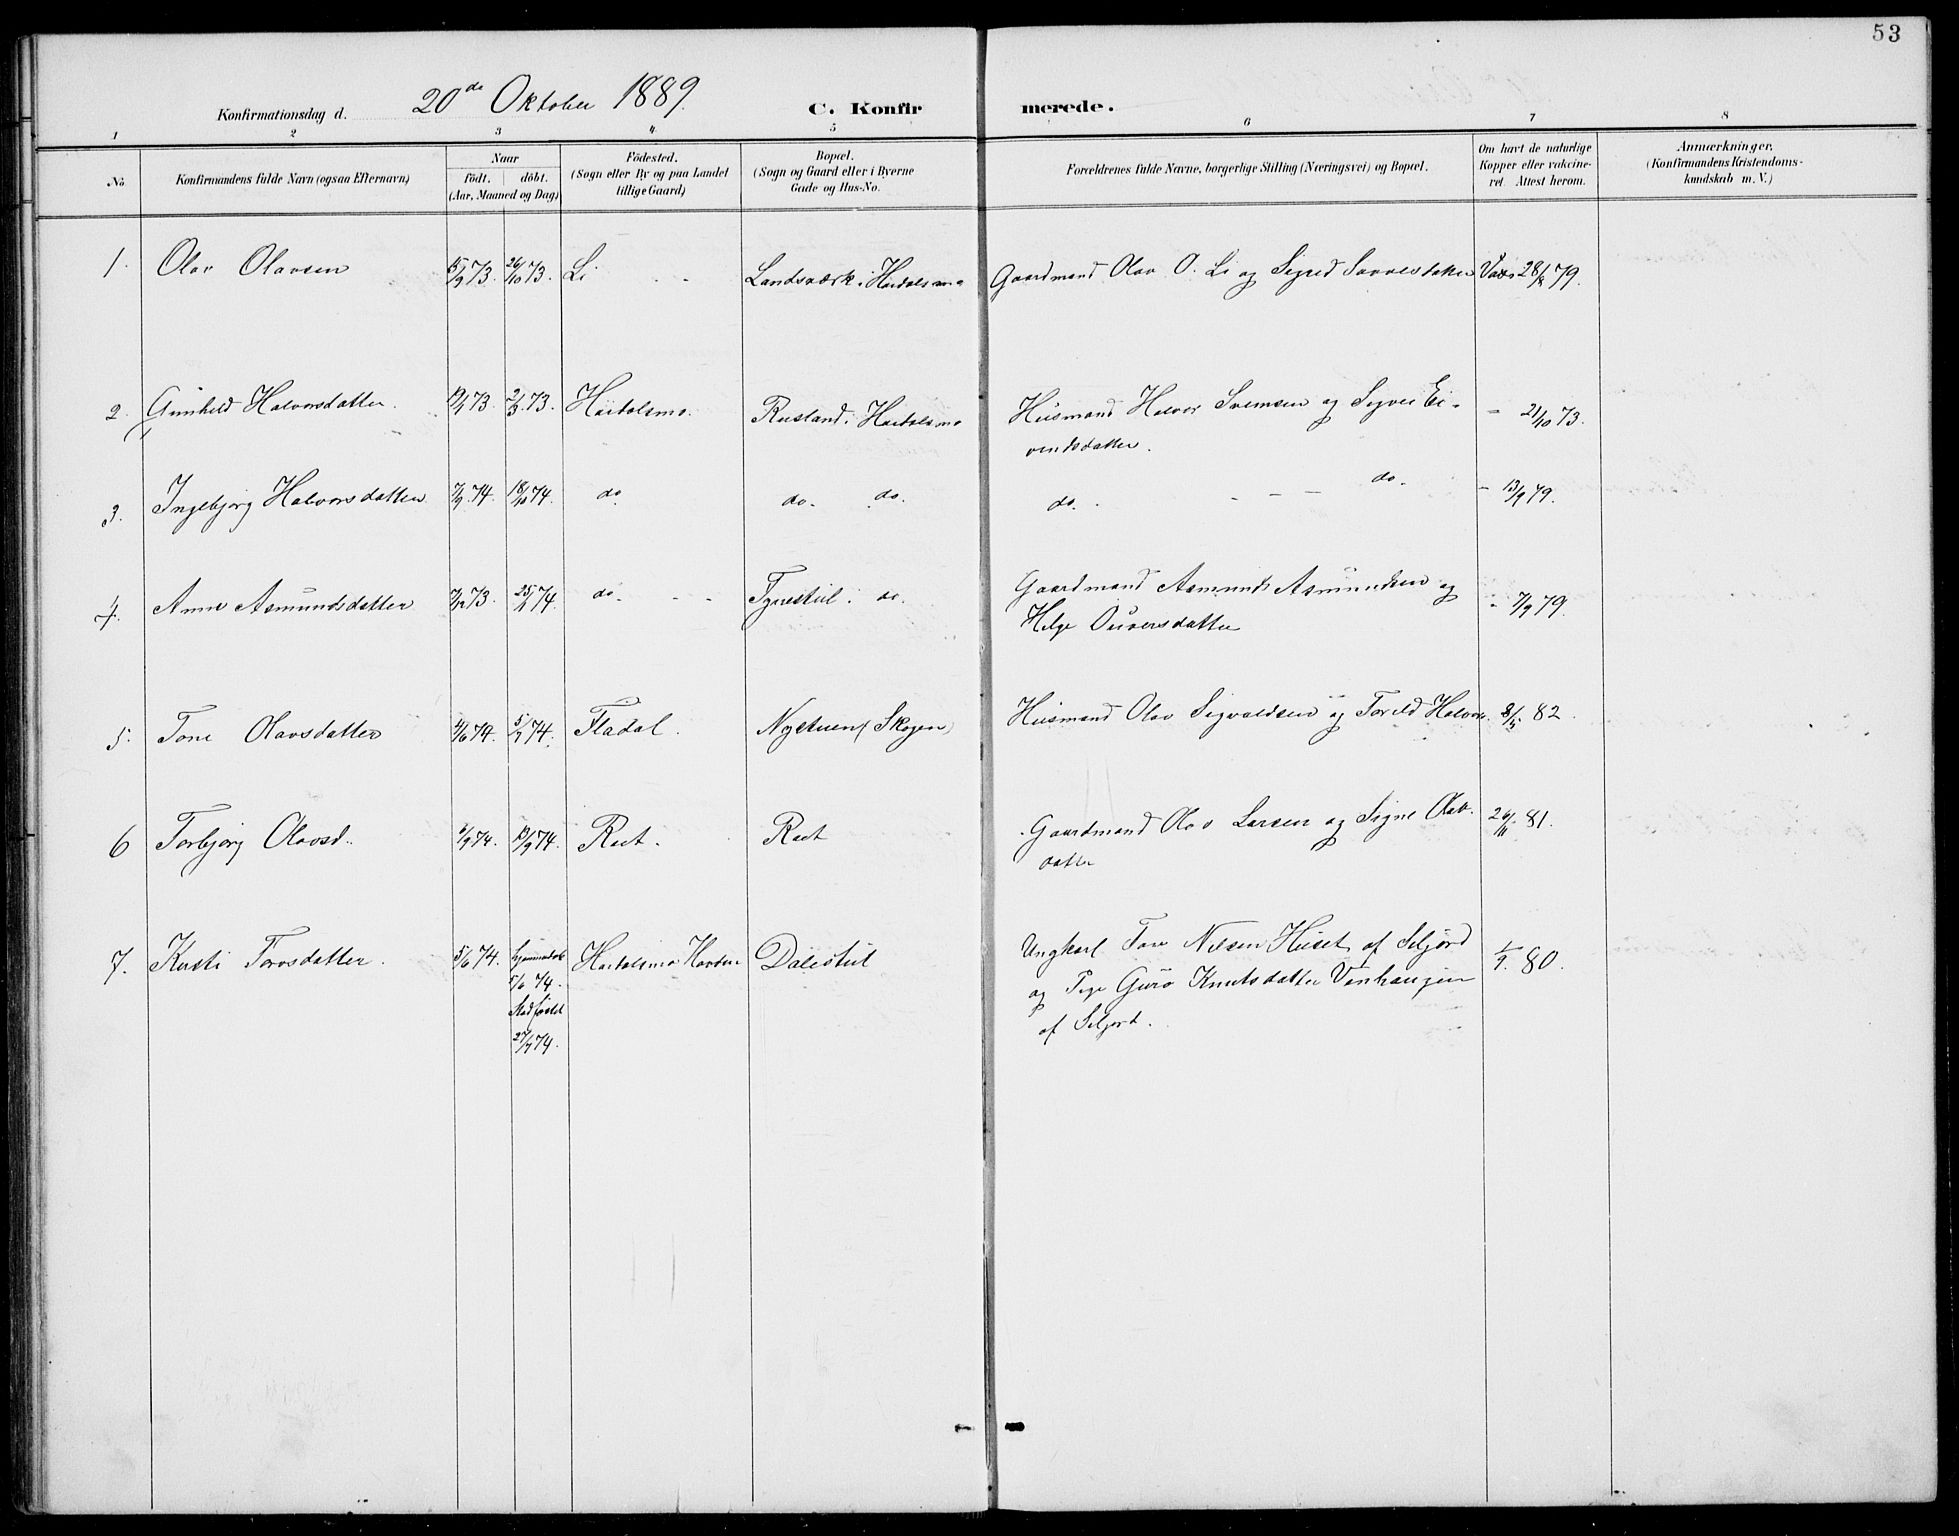 53
Konfirmationsdag d. 20de Oktober 1889. C. Konfirmerede.
1 2 3 4 5 6 7 8
No Konfirmandens fulde Navn (ogsaa Efternavn) Naar født. døbt. (Aar, Maaned og Dag) Fødested. (Sogn eller By og paa Landet tillige Gaard) Bopæl. (Sogn og Gaard eller i Byerne Gade og Hus-No. Forældrenes fulde Navne, borgerlige Stilling (Næringsvei) og Bopæl. Om havt de naturlige Kopper eller vakcineret. Attest herom. Anmærkninger. (Konfirmandens Kristendomskundskab m. V.)
1. Olav Olavsen 15/9 73. 26/10 73. Li - - Landsværk i Hjartdalsmo Gaardmand Olav O. Li og Sigrid Sovvesdatter 28/8 79.
2. Gunhild Halvorsdatter. 19/1 73 2/3 73. Rusland. Husmand Halvor Svensen og Signe Ei-
vindsdatter. - 21/10 73.
3. Ingebjørg Halvorsdatter 7/9 74. 18/10 74. do do. do. do. - - - do. - 13/9 79.
4. Anne Asmundsdatter 7/12 73. 25/1 74. do. - - do. Gaardmand Asmund Asmundsen og
Helge Ouversdatter - 7/9 79.
5. Tone Olavsdatter 4/6 74. 5/7 74. Fladal. Nystuen (Skogen) Husmand Olav Sigvaldsen og Torild Halvor. 82.
6 Torbjørg Olavsd.. 13/9 74. Gaardmand Olav Larsen og Signe Olav.
datter 26/11 81.
7. Kirsti Torsdatter. 5/6 74. hjemmedøbt
5/6 74.
Stadfæstet
27/9 74. Dalestul Ungkarl Tov Nilsen Huset af Seljord
og Pige Guro Knutsdatter
af Seljord. 80.